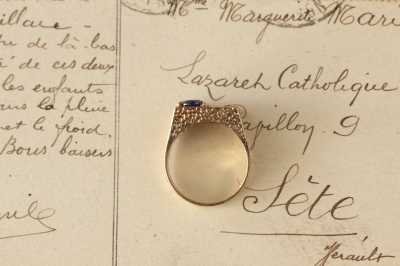 illare –
de là-bas
de ces deux
les enfants
la pluie
et le froid.
Bons baisers
Mme Marguerite Mari
Lazareh Catholique
apillon. 9
Sète
Herault